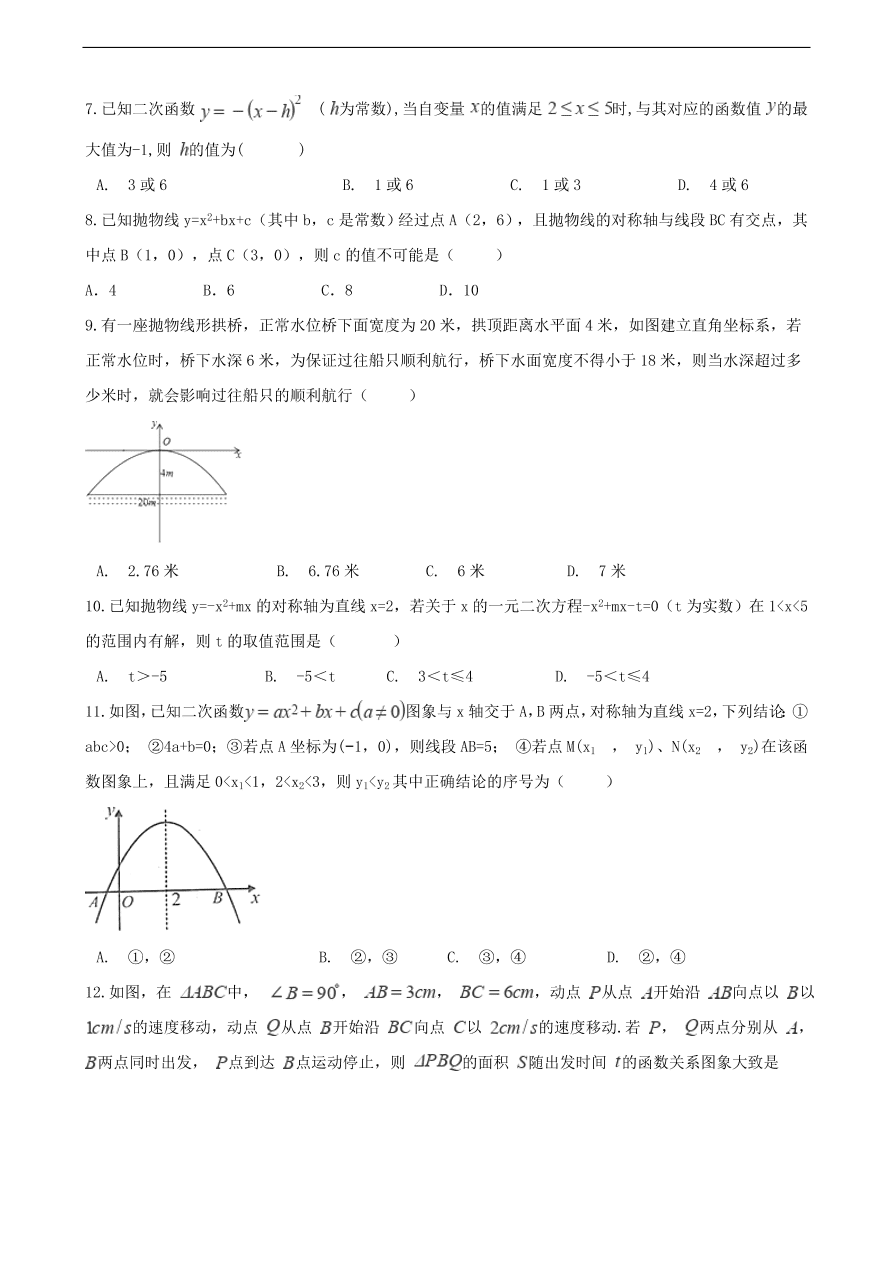 7.已知二次函数 y = −(x − h)² ( h为常数),当自变量 x的值满足 2 ≤ x ≤ 5时,与其对应的函数值 y的最
大值为-1,则 h的值为( )
A. 3 或 6 B. 1 或 6 C. 1 或 3 D. 4 或 6
8.已知抛物线 y=x²+bx+c（其中 b，c 是常数）经过点 A（2，6），且抛物线的对称轴与线段 BC 有交点，其
中点 B（1，0），点 C（3，0），则 c 的值不可能是（ ）
A．4 B．6 C．8 D．10
9.有一座抛物线形拱桥，正常水位桥下面宽度为 20 米，拱顶距离水平面 4 米，如图建立直角坐标系，若
正常水位时，桥下水深 6 米，为保证过往船只顺利航行，桥下水面宽度不得小于 18 米，则当水深超过多
少米时，就会影响过往船只的顺利航行（ ）
y
O
x
4m
20m
A. 2.76 米 B. 6.76 米 C. 6 米 D. 7 米
10.已知抛物线 y=-x²+mx 的对称轴为直线 x=2，若关于 x 的一元二次方程-x²+mx-t=0（t 为实数）在 1<x<5
的范围内有解，则 t 的取值范围是（ ）
A. t＞-5 B. -5＜t C. 3＜t≤4 D. -5＜t≤4
11.如图,已知二次函数y = ax2 + bx + c(a ≠ 0)图象与 x 轴交于 A,B 两点,对称轴为直线 x=2,下列结论: ①
abc>0; ②4a+b=0；③若点 A 坐标为(−1，0)，则线段 AB=5; ④若点 M(x₁ ， y₁)、N(x₂ ， y₂)在该函
数图象上，且满足 0<x₁<1，2<x₂<3，则 y₁<y₂其中正确结论的序号为（ ）
y
A O 2 B x
A. ①，② B. ②，③ C. ③，④ D. ②，④
12.如图，在 ΔABC中， ∠B = 90°， AB = 3cm， BC = 6cm，动点 P从点 A开始沿 AB向点以 B以
1cm/s的速度移动，动点 Q从点 B开始沿 BC向点 C以 2cm/s的速度移动.若 P， Q两点分别从 A，
B两点同时出发， P点到达 B点运动停止，则 ΔPBQ的面积 S随出发时间 t的函数关系图象大致是